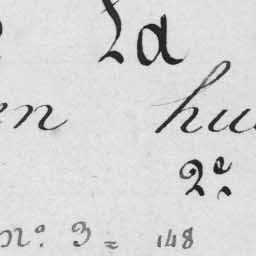 La
en hu
2º.
Nº. 3 = 148